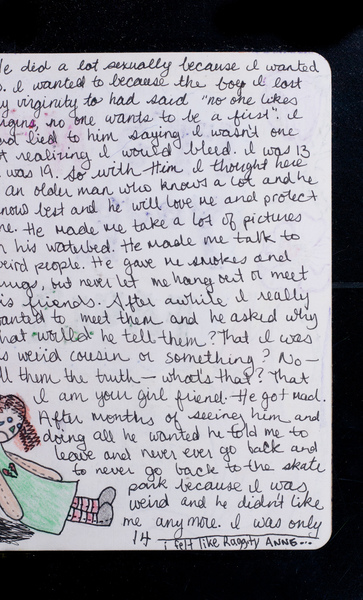 He did a lot sexually because I wanted
I wanted to because the boy I lost
my virginity to had said "no one likes
virgins, no one wants to be a first". I
had lied to him saying I wasn't one
not realizing I would bleed. I was 13
was 19. So with Him I thought here
an older man who knows a lot and he
know best and he will love me and protect
me. He made me take a lot of pictures
his waterbed. He made me talk to
weird people. He gave me smokes and
but never let me hang out or meet
his friends. After awhile I really
wanted to meet them and he asked why
what would he tell them? That I was
his weird cousin or something? No—
tell them the truth — what's that? That
I am your girl friend. He got mad.
After months of seeing him and
doing all he wanted he told me to
leave and never ever go back and
to never go back to the skate
park because I was
weird and he didn't like
me any more. I was only
14 I felt like Raggity ANNE...